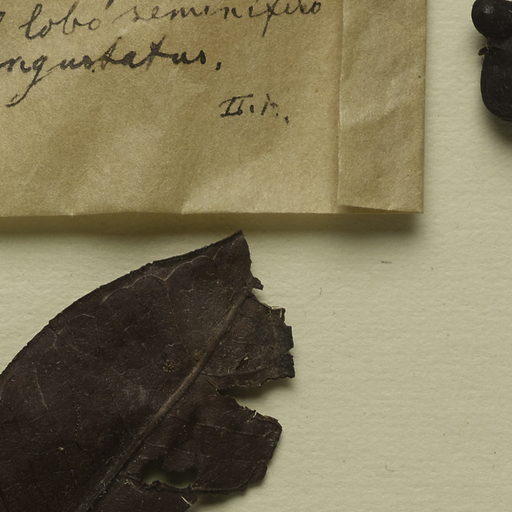 lobo seminifero
angustatus.
II. H.